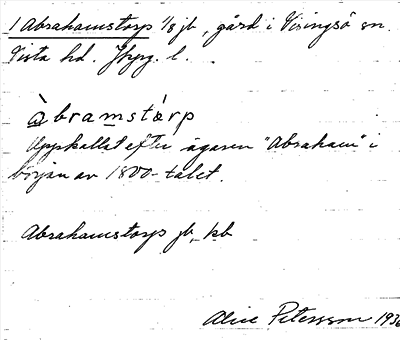 1 Abrahamstorp 1/8 jb, gård i Visingsö sn.
Vista hd. Jkpg. l.
àbramstàrp
Uppkallat efter ägaren "Abraham" i
början av 1800-talet.
Abrahamstorp jb, kb
Alice Petersson 1936